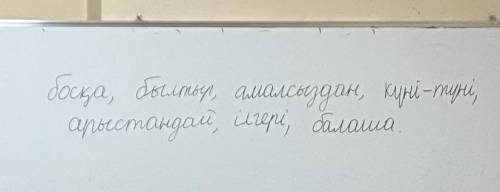 босқа, былтыр, амалсыздан, күні-түні,
арыстандай, ілгері, балаша.